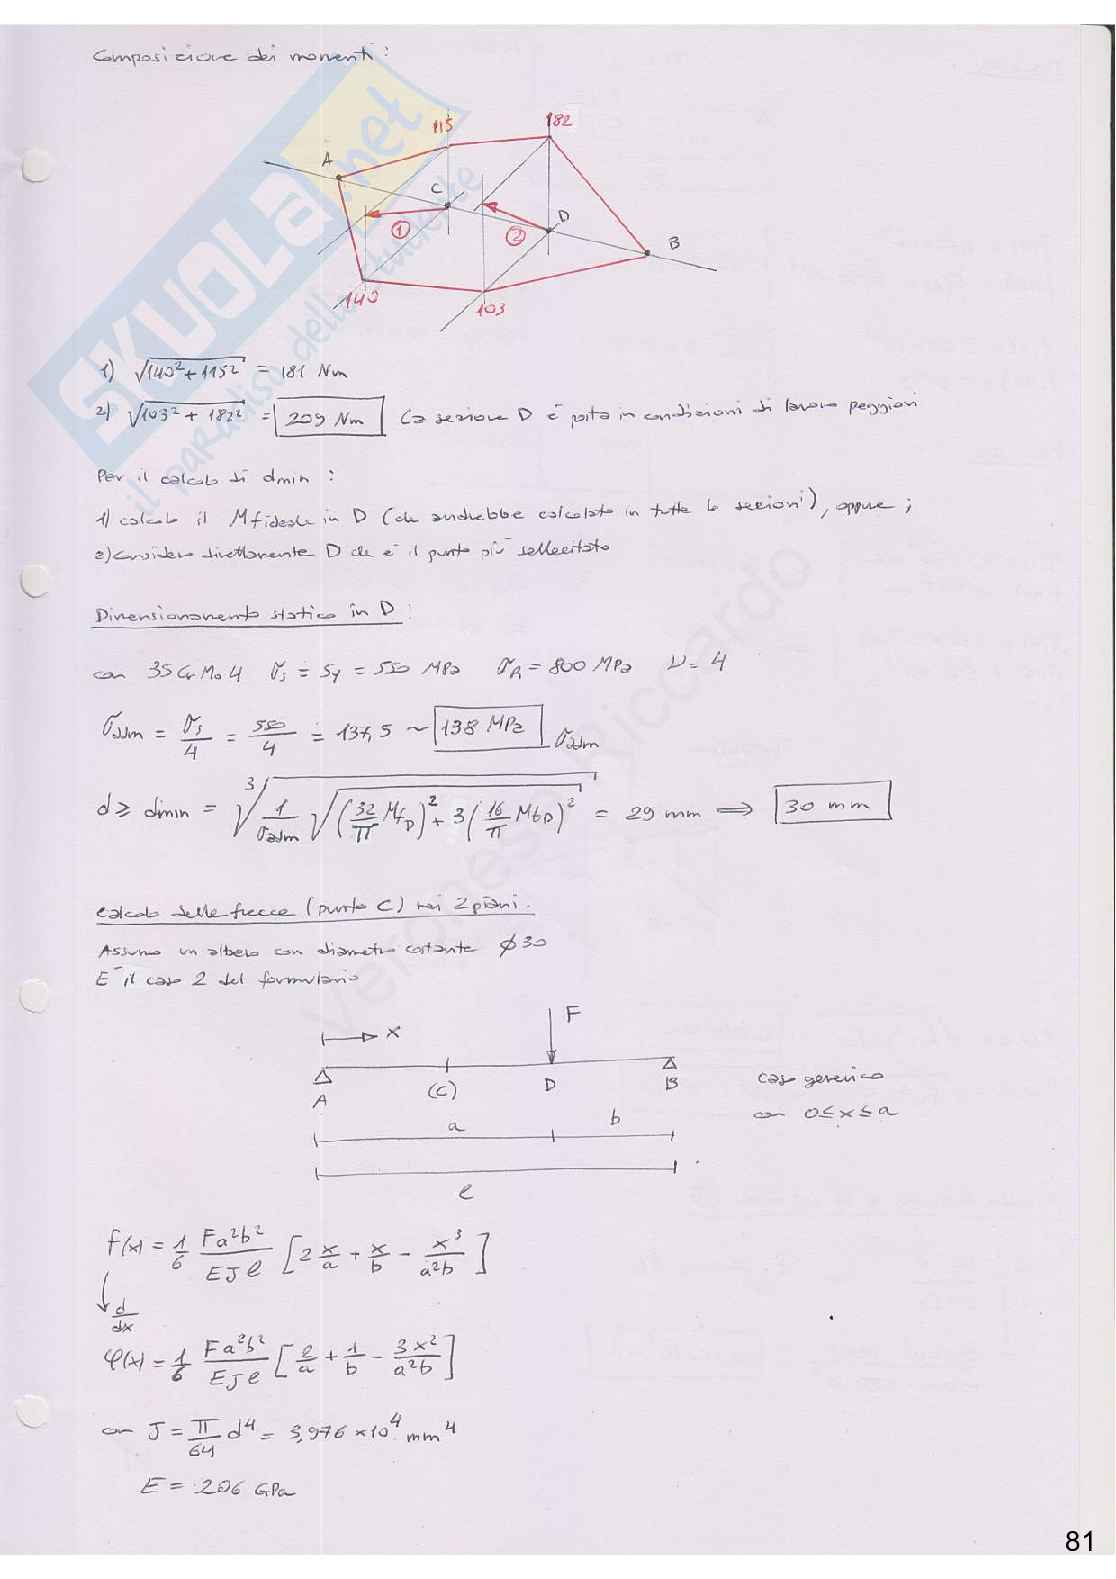 Composizione dei momenti:
115
182
A
C
D
B
1
2
140
103
1) √140²+115² = 181 Nm
2) √103²+182² = 209 Nm La sezione D è posta in condizioni di lavoro peggiori
Per il calcolo di dmin:
1) calcolo il Mfideale in D (che andrebbe calcolato in tutte le sezioni), oppure;
2) considero direttamente D che è il punto più sollecitato
Dimensionamento statico in D:
con 35CrMo4 σs = Sy = 550 MPa σR = 800 MPa ν = 4
σadm = σs/4 = 550/4 = 137,5 ~ 138 MPa σadm
d ≥ dmin = ³√(1/σadm √((32/π MfD)² + 3(16/π MtD)²)) = 29 mm ⟹ 30 mm
Calcolo delle frecce (punto C) nei 2 piani:
Assumo un albero con diametro costante ϕ30
E' il caso 2 del formulario
x
F
A
(C)
D
B
caso generico
con 0≤x≤a
a
b
ℓ
f(x) = 1/6 Fa²b²/EJℓ [2 x/a + x/b - x³/a²b]
d/dx
φ(x) = 1/6 Fa²b²/EJℓ [2/a + 1/b - 3x²/a²b]
con J = π/64 d⁴ = 3,976 ×10⁴ mm⁴
E = 206 GPa
81
SKUOLA.net
il paradiso dello studente
Veronesi Riccardo